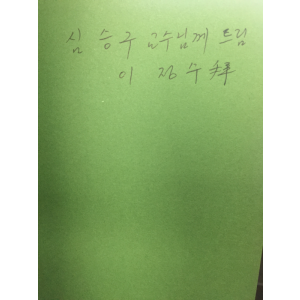 심승구 교수님께 드림
이 정수 拜